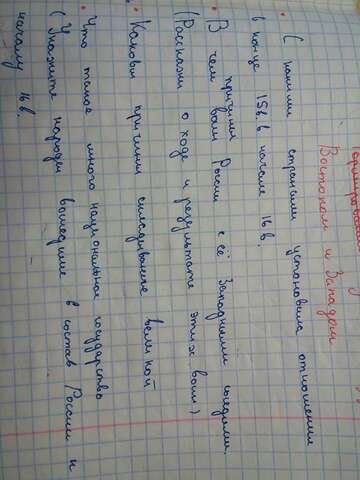 Востоком и Западом
С какими странами установила отношения
в конце 15 в. в начале 16 в.
В чем причины войн России с её Западными соседями.
(Расскажи о ходе и результате этих войн)
Каковы причины складывание великой
Что такое много национальное государство
(Укажите народы вошедшие в состав России к
началу 16 в.